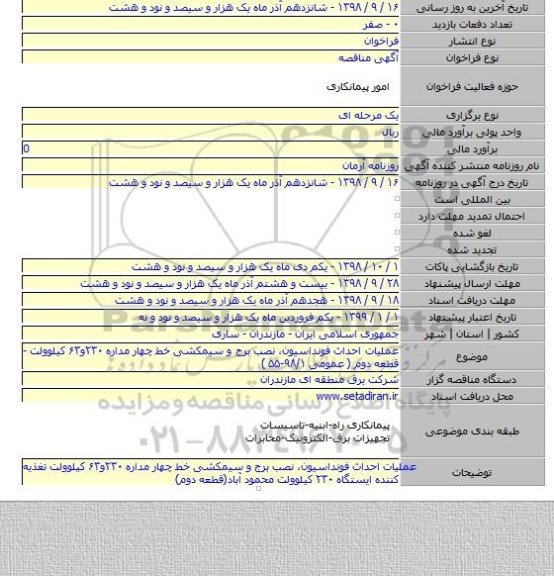 تاریخ آخرین به روز رسانی ۱۶ / ۹ / ۱۳۹۸ - شانزدهم آذر ماه یک هزار و سیصد و نود و هشت
تعداد دفعات بازدید ۰ - صفر
نوع انتشار فراخوان
نوع فراخوان آگهی مناقصه
حوزه فعالیت فراخوان امور پیمانکاری
نوع برگزاری یک مرحله ای
واحد پولی برآورد مالی ریال
برآورد مالی 0
نام روزنامه منتشر کننده آگهی روزنامه آرمان
تاریخ درج آگهی در روزنامه ۱۶ / ۹ / ۱۳۹۸ - شانزدهم آذر ماه یک هزار و سیصد و نود و هشت
بین المللی است
احتمال تمدید مهلت دارد
لغو شده
تجدید شده
تاریخ بازگشایی پاکات ۱ / ۱۰ / ۱۳۹۸ - یکم دی ماه یک هزار و سیصد و نود و هشت
مهلت ارسال پیشنهاد ۲۸ / ۹ / ۱۳۹۸ - بیست و هشتم آذر ماه یک هزار و سیصد و نود و هشت
مهلت دریافت اسناد ۱۸ / ۹ / ۱۳۹۸ - هجدهم آذر ماه یک هزار و سیصد و نود و هشت
تاریخ اعتبار پیشنهاد ۱ / ۱ / ۱۳۹۹ - یکم فروردین ماه یک هزار و سیصد و نود و نه
کشور | استان | شهر جمهوری اسلامی ایران - مازندران - ساری
موضوع عملیات احداث فونداسیون، نصب برج و سیمکشی خط چهار مداره ۲۳۰و۶۳ کیلوولت -
قطعه دوم ( عمومی ۹۸/۱-۵۵ )
دستگاه مناقصه گزار شرکت برق منطقه ای مازندران
محل دریافت اسناد www.setadiran.ir
طبقه بندی موضوعی پیمانکاری راه-ابنیه-تاسیسات
تجهیزات برق-الکترونیک-مخابرات
توضیحات عملیات احداث فونداسیون، نصب برج و سیمکشی خط چهار مداره ۲۳۰و۶۳ کیلوولت تغذیه
کننده ایستگاه ۲۳۰ کیلوولت محمود آباد(قطعه دوم)
پایگاه اطلاع رسانی مناقصه و مزایده